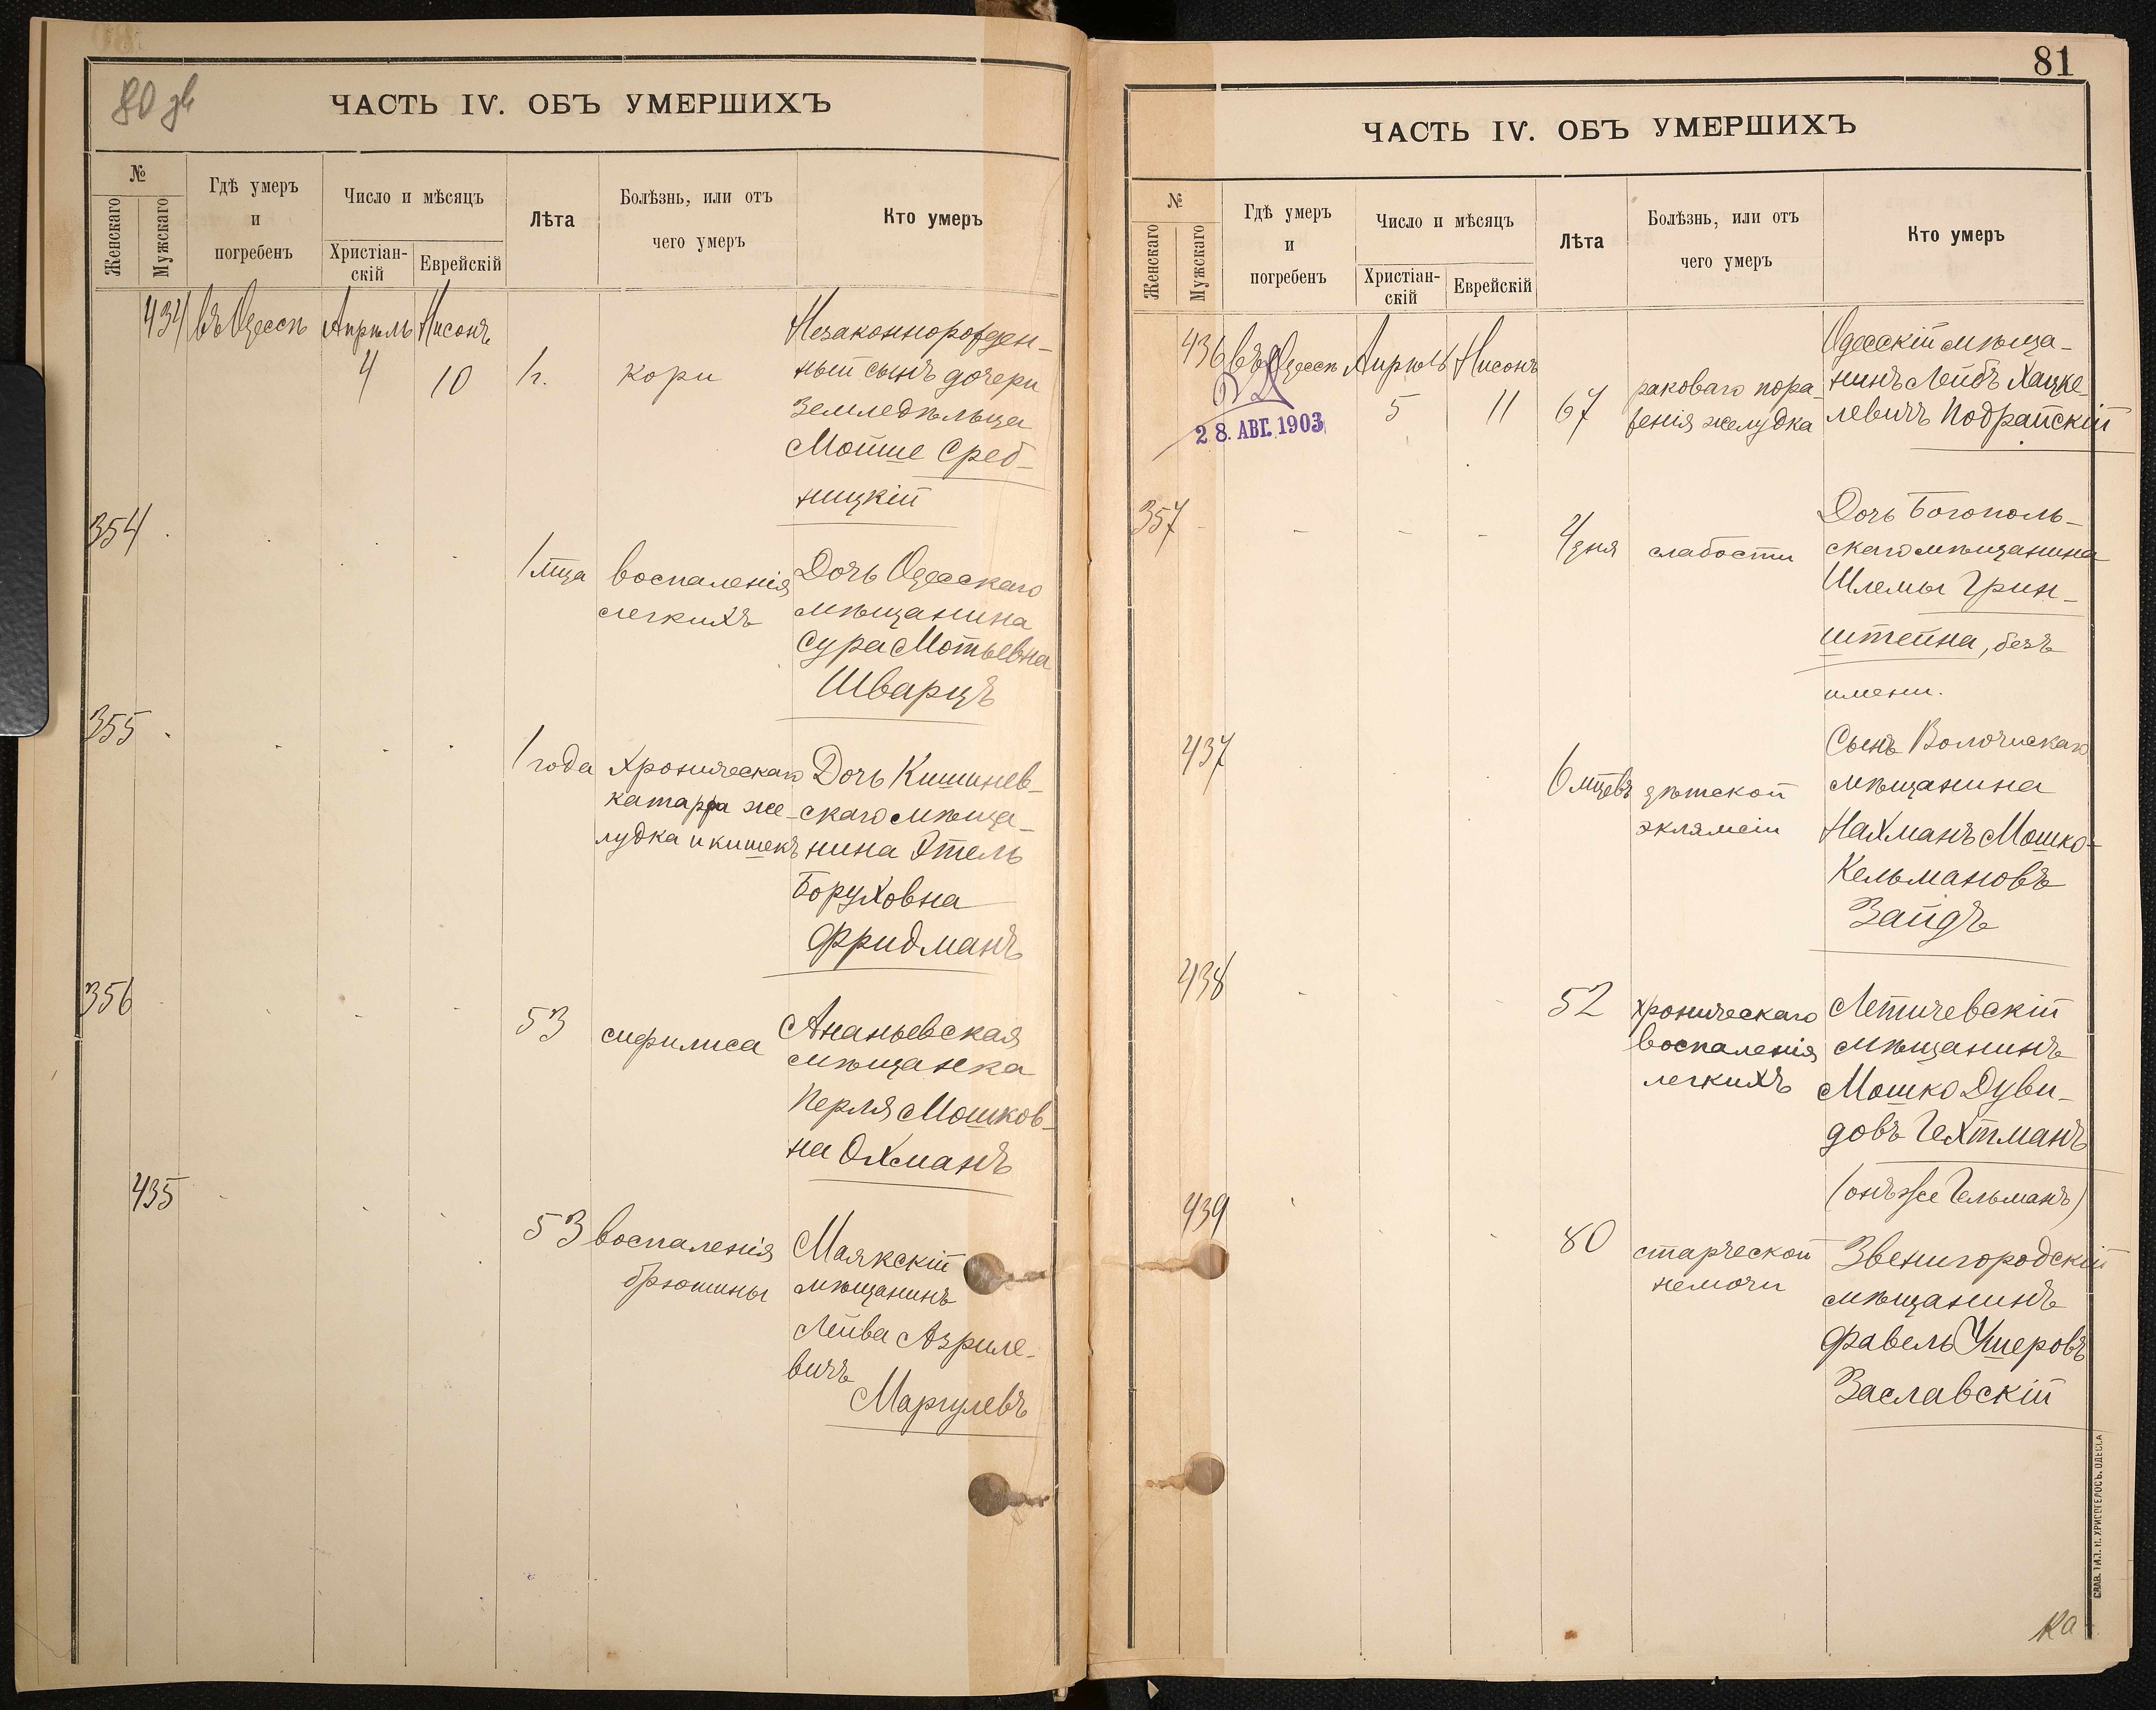 80 дѣ
ЧАСТЬ IV. ОБЪ УМЕРШИХЪ
№
Женскаго
Мужскаго
Гдѣ умеръ
и
погребенъ
Число и мѣсяцъ
Христіан-
скій
Еврейскій
Лѣта
Болѣзнь, или отъ
чего умеръ
Кто умеръ
434 въ Одессѣ Апрѣль Нисонъ
4 10 1 г. кори
Незаконнорожден-
ный сынъ дочери
земледѣльца
Мойше Сред-
ницкій
354
1 мца воспаленія
легкихъ
Дочь Одесскаго
мѣщанина
Сура Мотьевна
Шварцъ
355
1 года хроническаго
катарра же-
лудка и кишекъ
Дочь Кишинев-
скаго мѣща-
нина Этель
Боруховна
Фридманъ
356
53 сифилиса
Ананьевская
мѣщанка
Перля Мошков-
на Охманъ
435
53 воспаленія
брюшины
Маякскій
мѣщанинъ
Лейва Азриле-
вичъ
Маргулевъ
81
ЧАСТЬ IV. ОБЪ УМЕРШИХЪ
№
Женскаго
Мужскаго
Гдѣ умеръ
и
погребенъ
Число и мѣсяцъ
Христіан-
скій
Еврейскій
Лѣта
Болѣзнь, или отъ
чего умеръ
Кто умеръ
436 въ Одессѣ Апрѣль Нисонъ
28. АВГ. 1903
5 11 67 раковаго пора-
женія желудка
Одесскій мѣща-
нинъ Лейбъ Хацке-
левичъ Подрайскій
357
4 дня слабости
Дочь Богополь-
скаго мѣщанина
Шлемы Грин-
штейна, безъ
имени.
437
6 мцевъ дѣтской
эклямсіи
Сынъ Волочискаго
мѣщанина
Нахманъ Мошко-
Кельмановъ
Зайдъ
438
52 хроническаго
воспаленія
легкихъ
Летичевскій
мѣщанинъ
Мошко Дуви-
довъ Гехтманъ
(онъ же Гельманъ)
439
80 старческой
немочи
Звенигородскій
мѣщанинъ
Фавель Ушеровъ
Заславскій
СЛАВ. ТИП. Н. ХРИСОГЕЛОСЪ. ОДЕССА